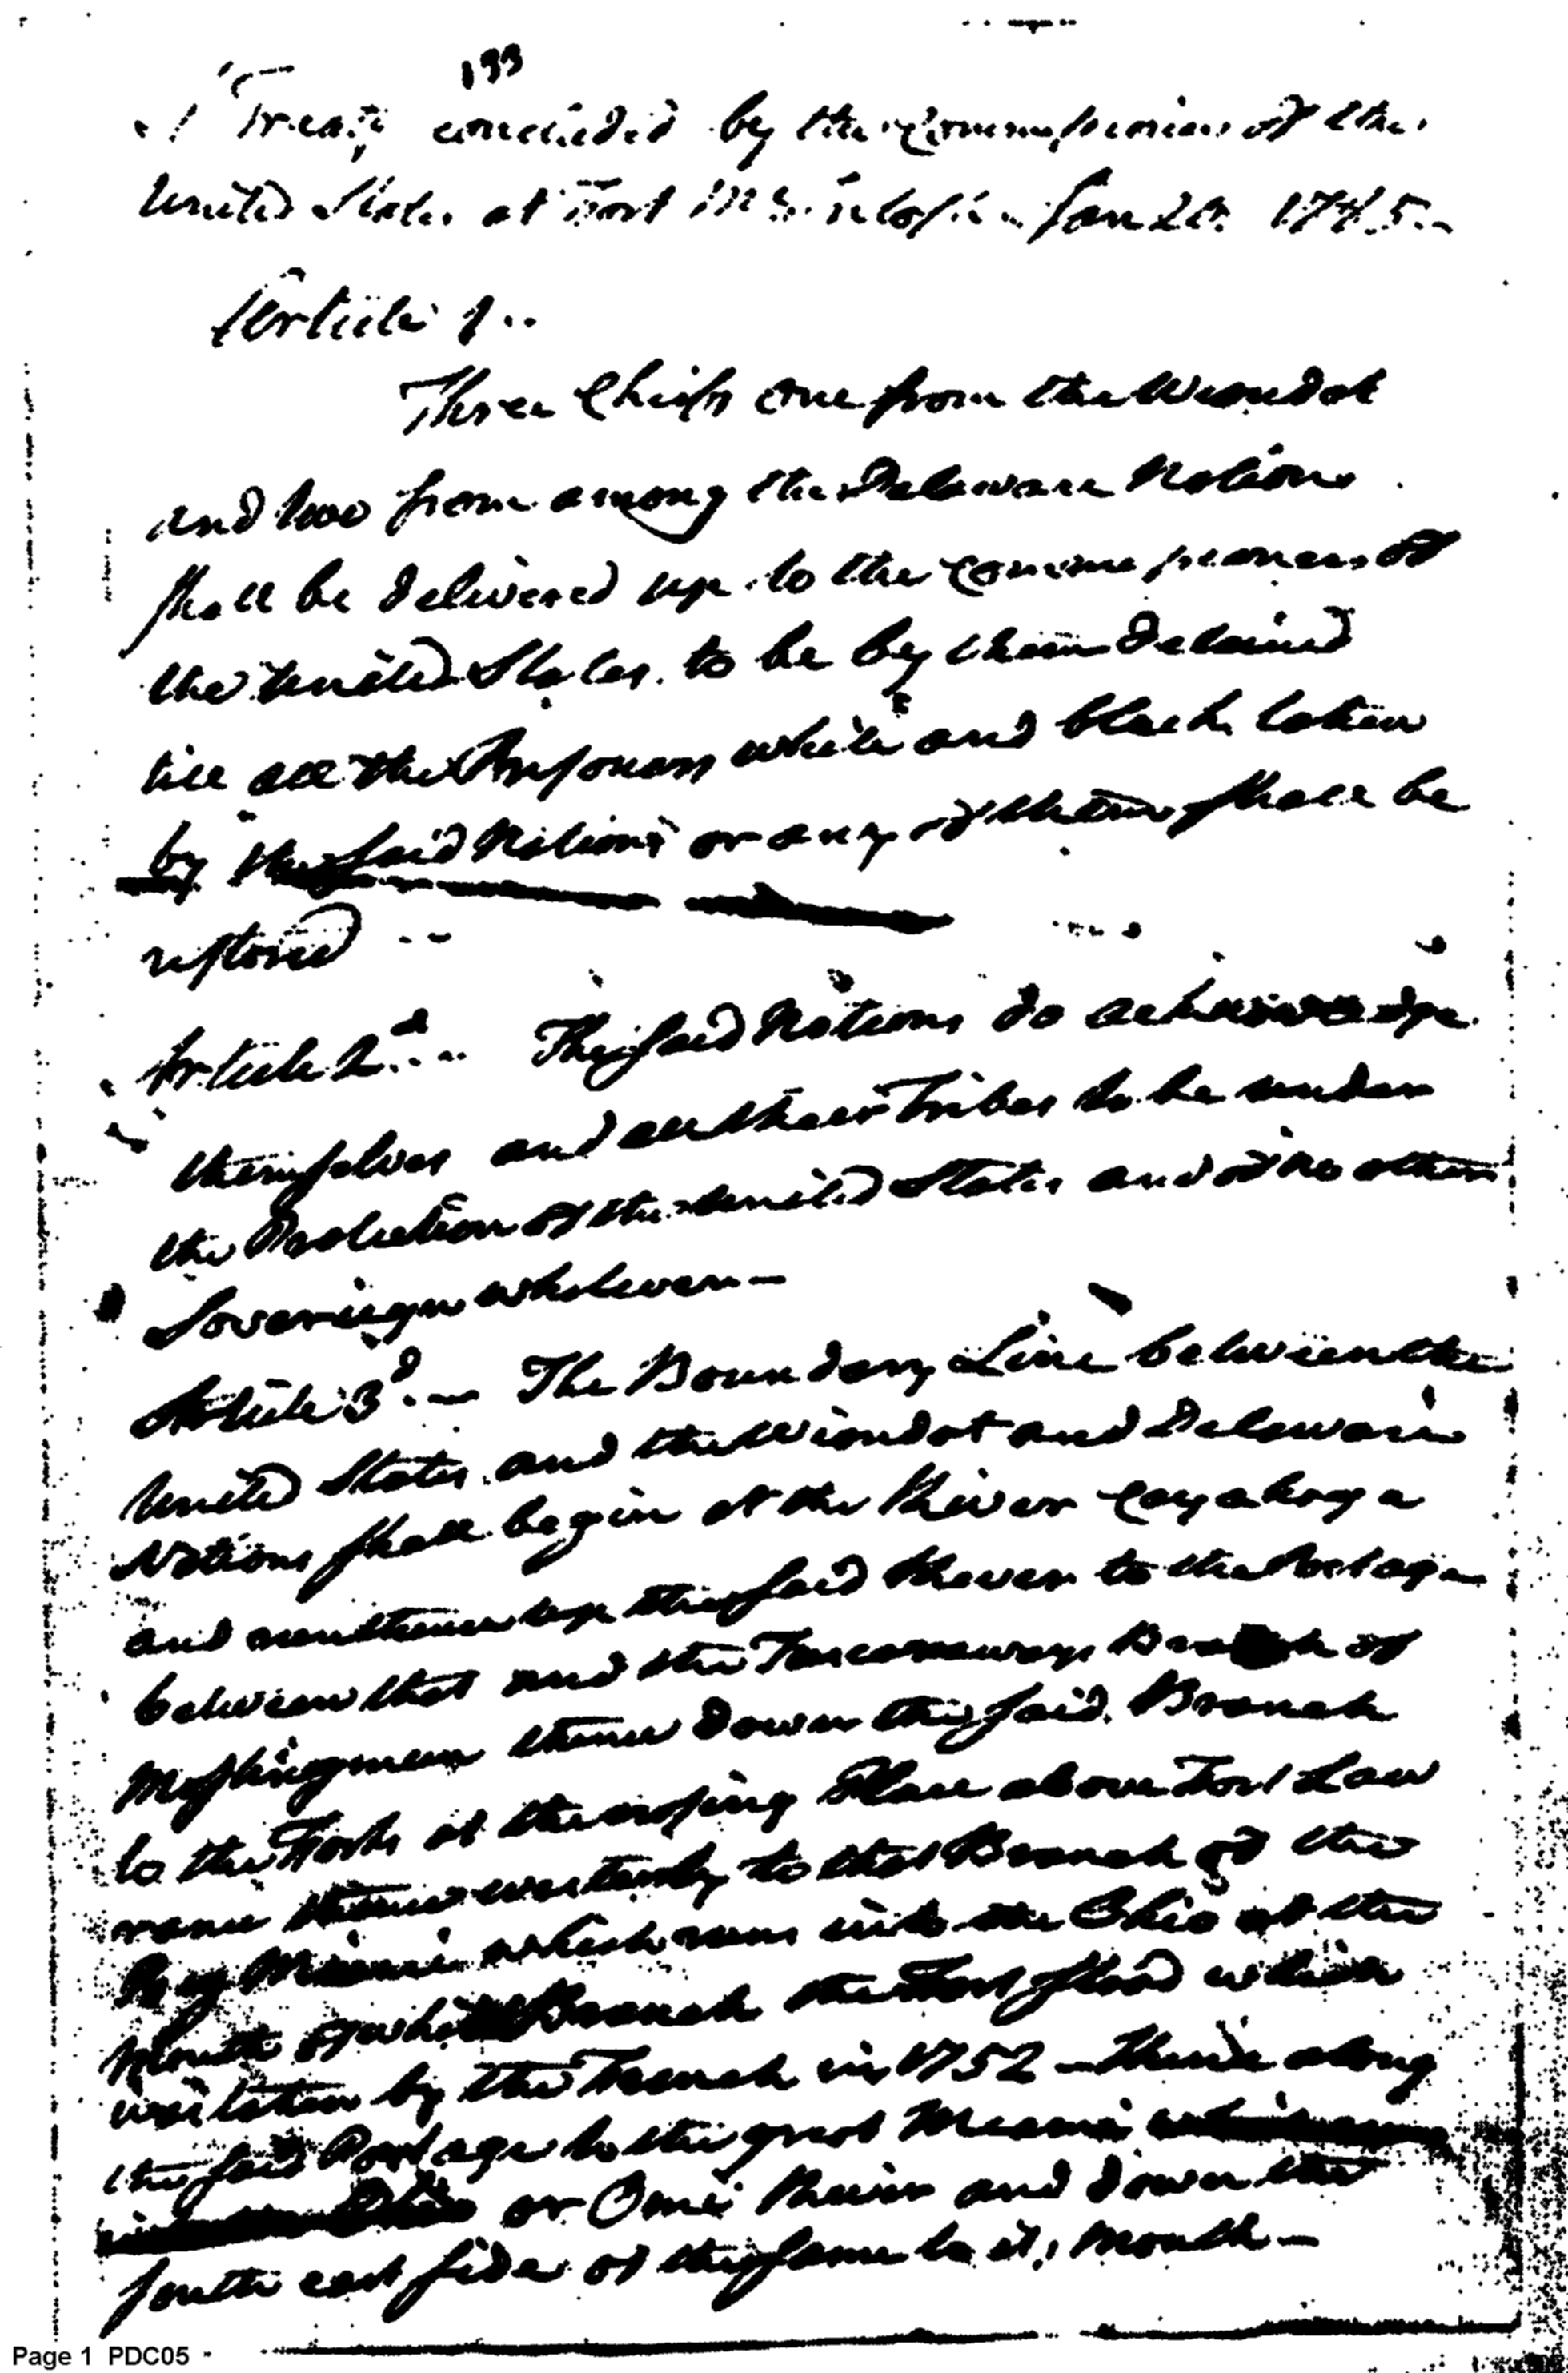 133
A Treaty concluded by the Commissioners of the
United States at Fort Jan 20. 1785 -
Article 1 ..
Three Chiefs one from the Wiandot
and two from among the Delaware Nations
shall be delivered up to the Commissioners of
the United States. to be by them detained
till all the Prisoners white and black taken
by the said Nations or any of them shall be
restored --
Article 2d.- The said Nations do acknowledge
themselves and all their Tribes to be under
the Protection of the United States and of no other
Sovereign whatever -
Article 3d. - The Boundary Line between the
United States and the Wiandot and Delaware
Nations shall begin at the River Cayahoga
and run thence up the said River to the Portage
between that and the Tuscarawas Branch of
thence down the said Branch
to the Forks at the crossing Place above Fort Law
rance thence westerly to that Branch of the
Big Miami which runs into the Ohio at the
Mouth of which Branch the Fort stood which
was taken by the French in 1752 - thence along
the said Portage to the great Miami
or Ome River and down the
south east side of the same to its Mouth -
Page 1 PDC05